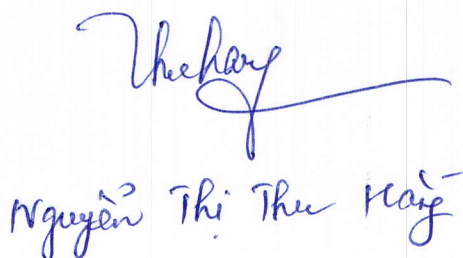 Thuhang
Nguyễn Thị Thu Hằng